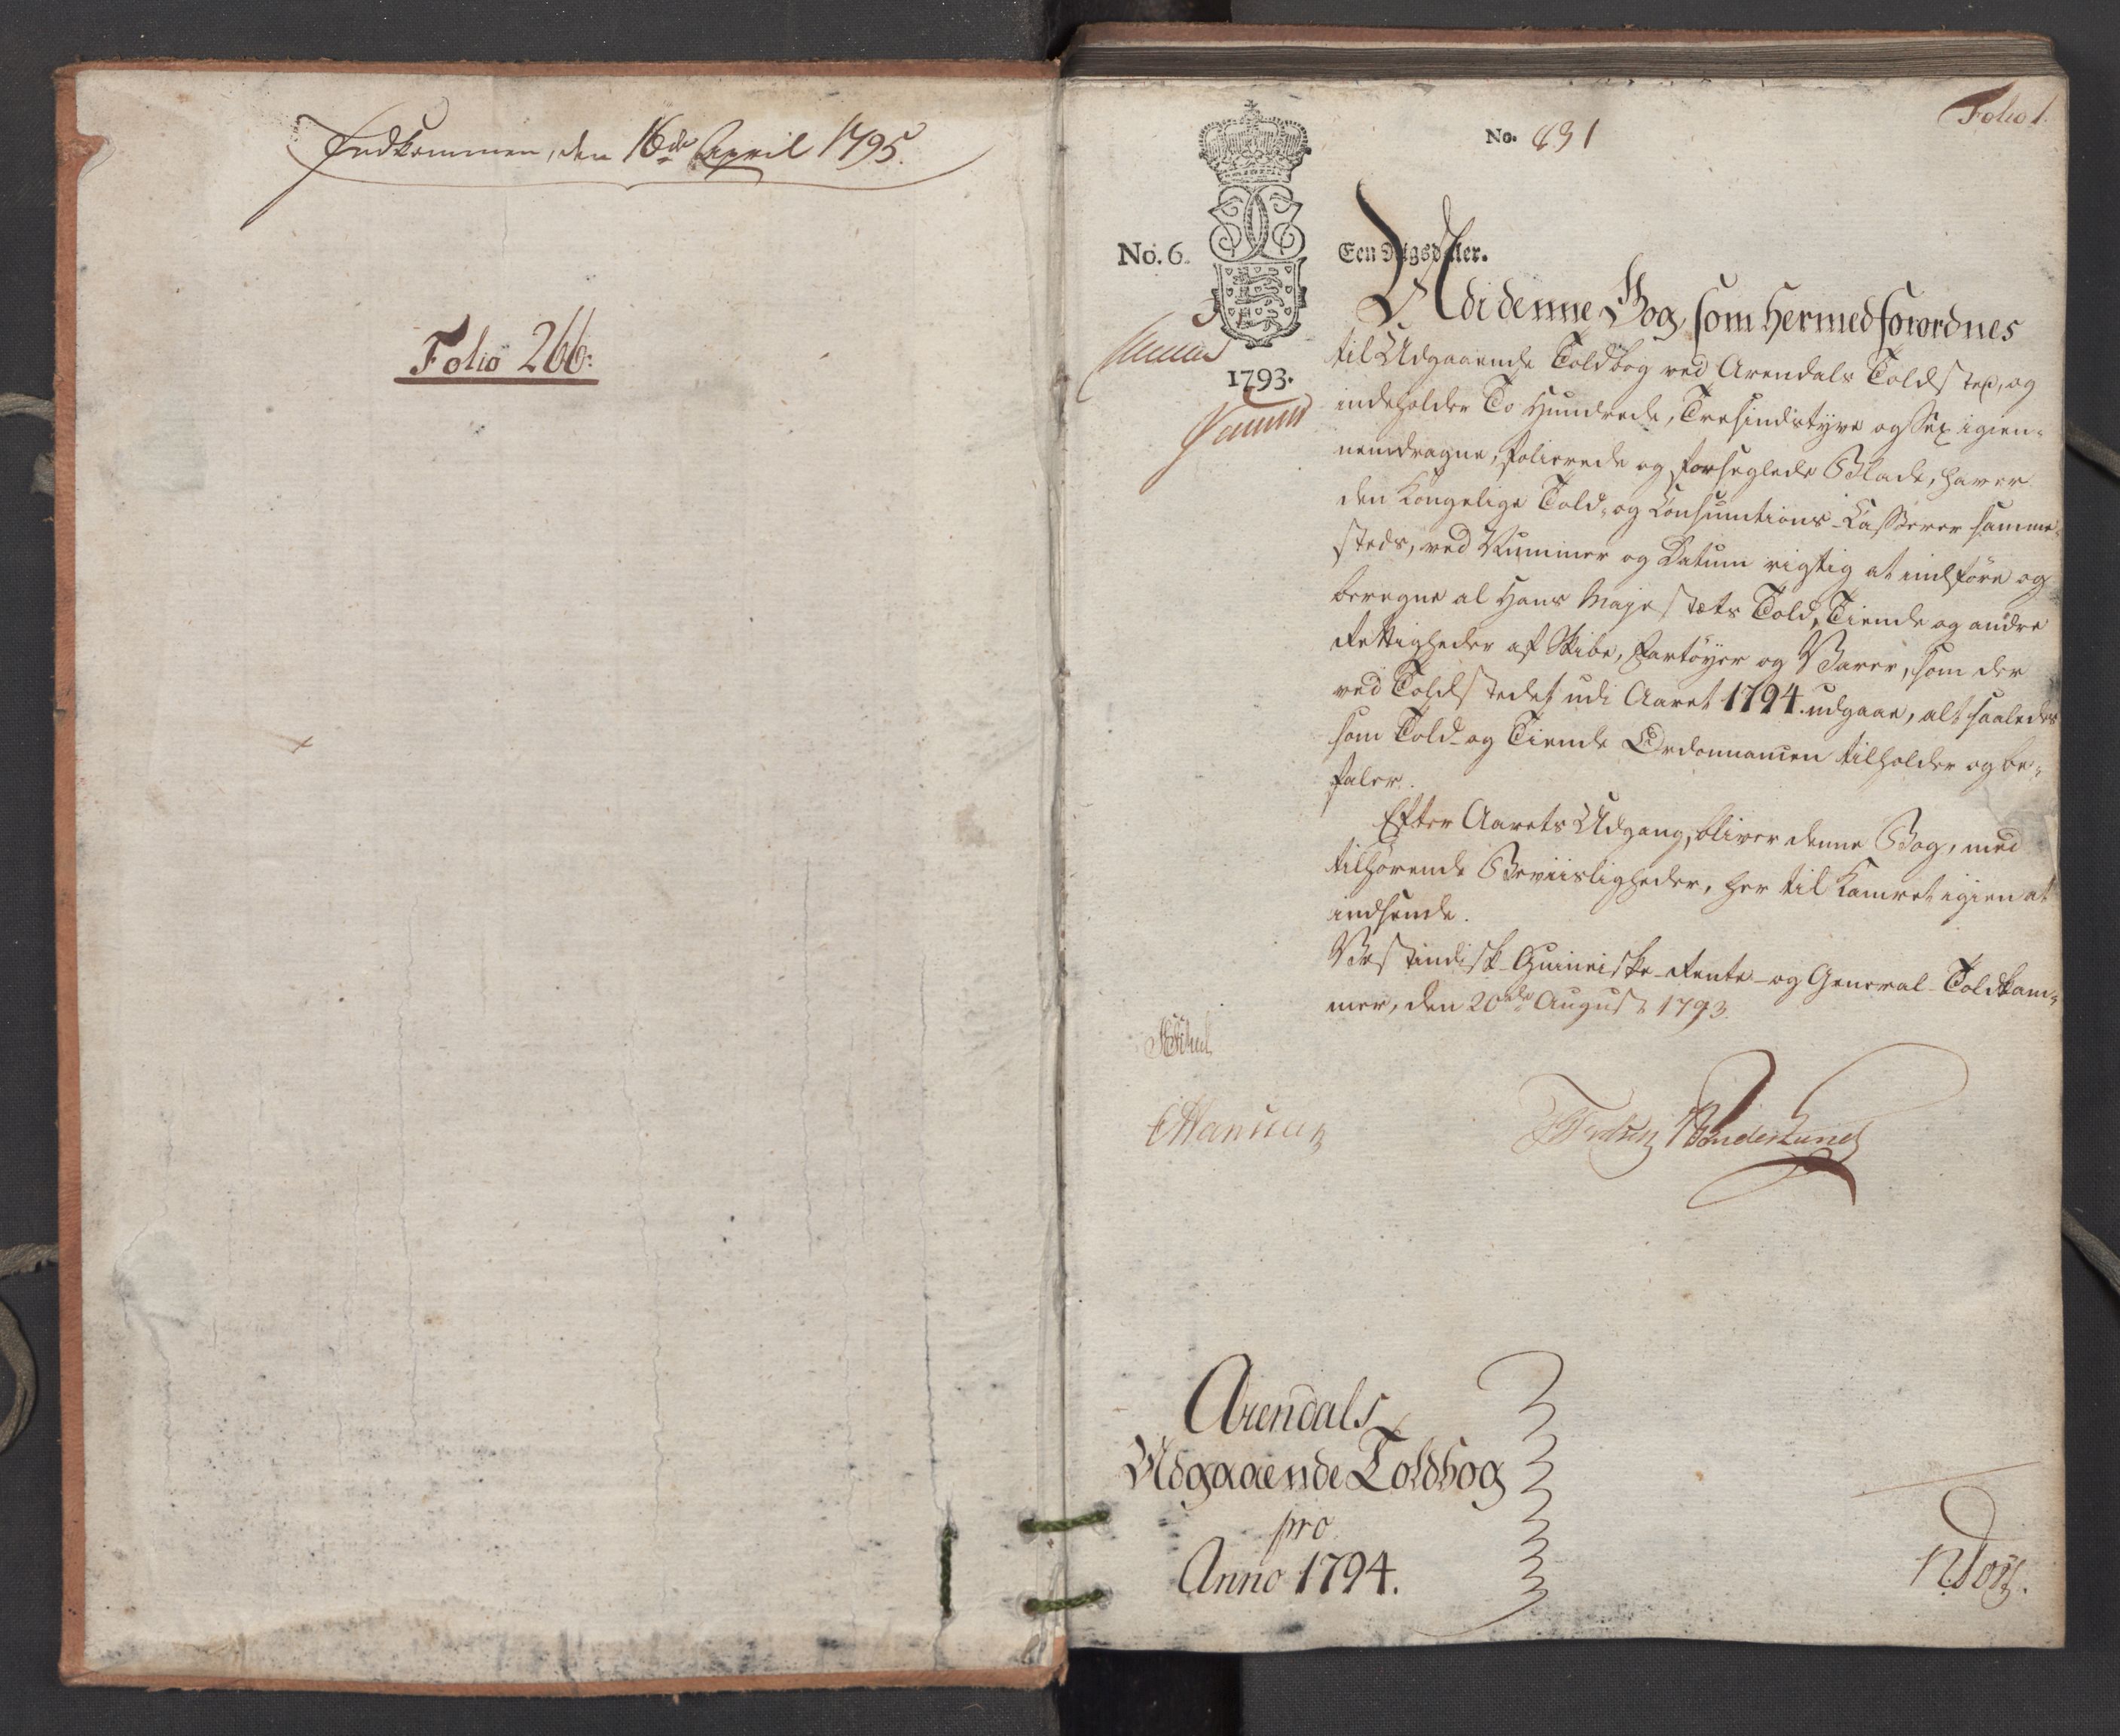 Indkommen, den 16de April 1795.
Folio 266:
Folio 1.
No. 831
No. 6.
Een Rigsdaler.
1793.
Udi denne Bog, som hermed forordnes
til Udgaaende Toldbog ved Arendals Toldsted, og
indeholder To Hundrede, Tresindstyve og Sex igien-
nemdragne, folierede og forseglede Blade, haver
den Kongelige Told- og Consumtions-Casserer samme-
steds, ved Nummer og Datum rigtig at indføre og
beregne al Hans Majestæts Told, Tiende og andre
Rettigheder af Skibe, Fartøyer og Varer, som der
ved Toldstedet udi Aaret 1794. udgaae, alt saaledes
som Told- og Tiende Ordonnancen tilholder og be-
faler.
Efter Aarets Udgang, bliver denne Bog, med
tilhørende Beviisligheder, her til Kamret igien at
indsende.
Vestindisk-Guineiske-Rente- og General-Toldkam-
mer, den 20de August 1793.
Arendals
Udgaaende Toldbog
pro
Anno 1794.